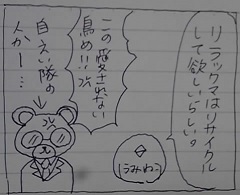 リラックマはリサイクル
して欲しいらしい。
(うみねこ)
この愛されない
鳥め!!
自えい隊の
人かー…